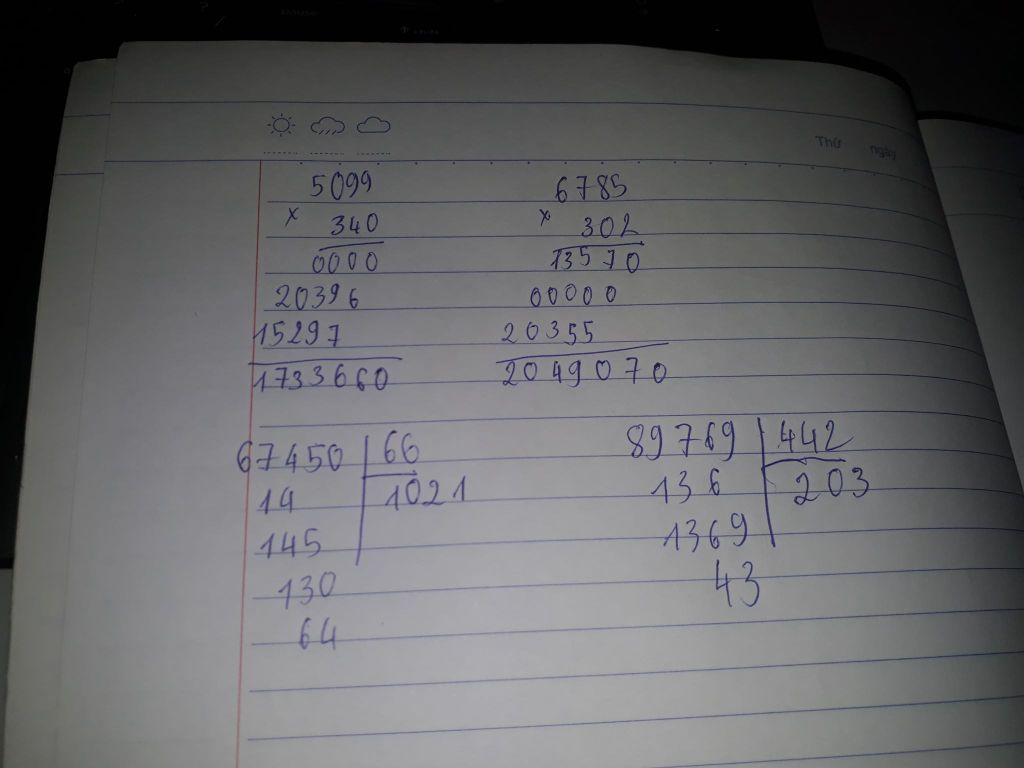 Thứ ngày
5099
x 340
0000
20396
15297
1733660
6785
x 302
13570
00000
20355
2049070
67450 66
14 1021
145
130
64
89769 442
136 203
1369
43